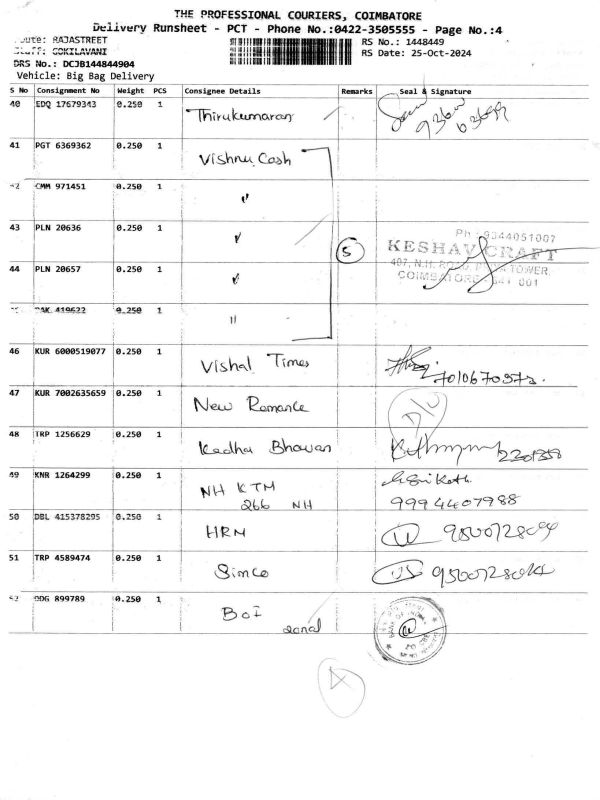 THE PROFESSIONAL COURIERS, COIMBATORE
Delivery Runsheet - PCT - Phone No.:0422-3505555 - Page No.:4
Route: RAJASTREET
RS No.: 1448449
Staff: GOKILAVANI
RS Date: 25-Oct-2024
DRS No.: DCJB144844904
Vehicle: Big Bag Delivery
S No Consignment No Weight PCS Consignee Details Remarks Seal & Signature
40 EDQ 17679343 0.250 1 Thirukumaran
41 PGT 6369362 0.250 1 Vishnu Cash
42 CMM 971451 0.250 1 "
43 PLN 20636 0.250 1 "
5
Ph : 9344051007
KESHAV CRAFT
44 PLN 20657 0.250 1 "
407, N.H. ROAD, TOWER
COIMBATORE - 641 001
419622 0.250 1 "
46 KUR 6000519077 0.250 1 Vishal Times
47 KUR 7002635659 0.250 1 New Romance
D/L
48 TRP 1256629 0.250 1 Kadha Bhavan
49 KNR 1264299 0.250 1 NH KTM
266 NH
9994407988
50 DBL 415378295 0.250 1 HRM
51 TRP 4589474 0.250 1 Simco
52 DDG 899789 0.250 1 BOI
zonal
BANK OF INDIA
4